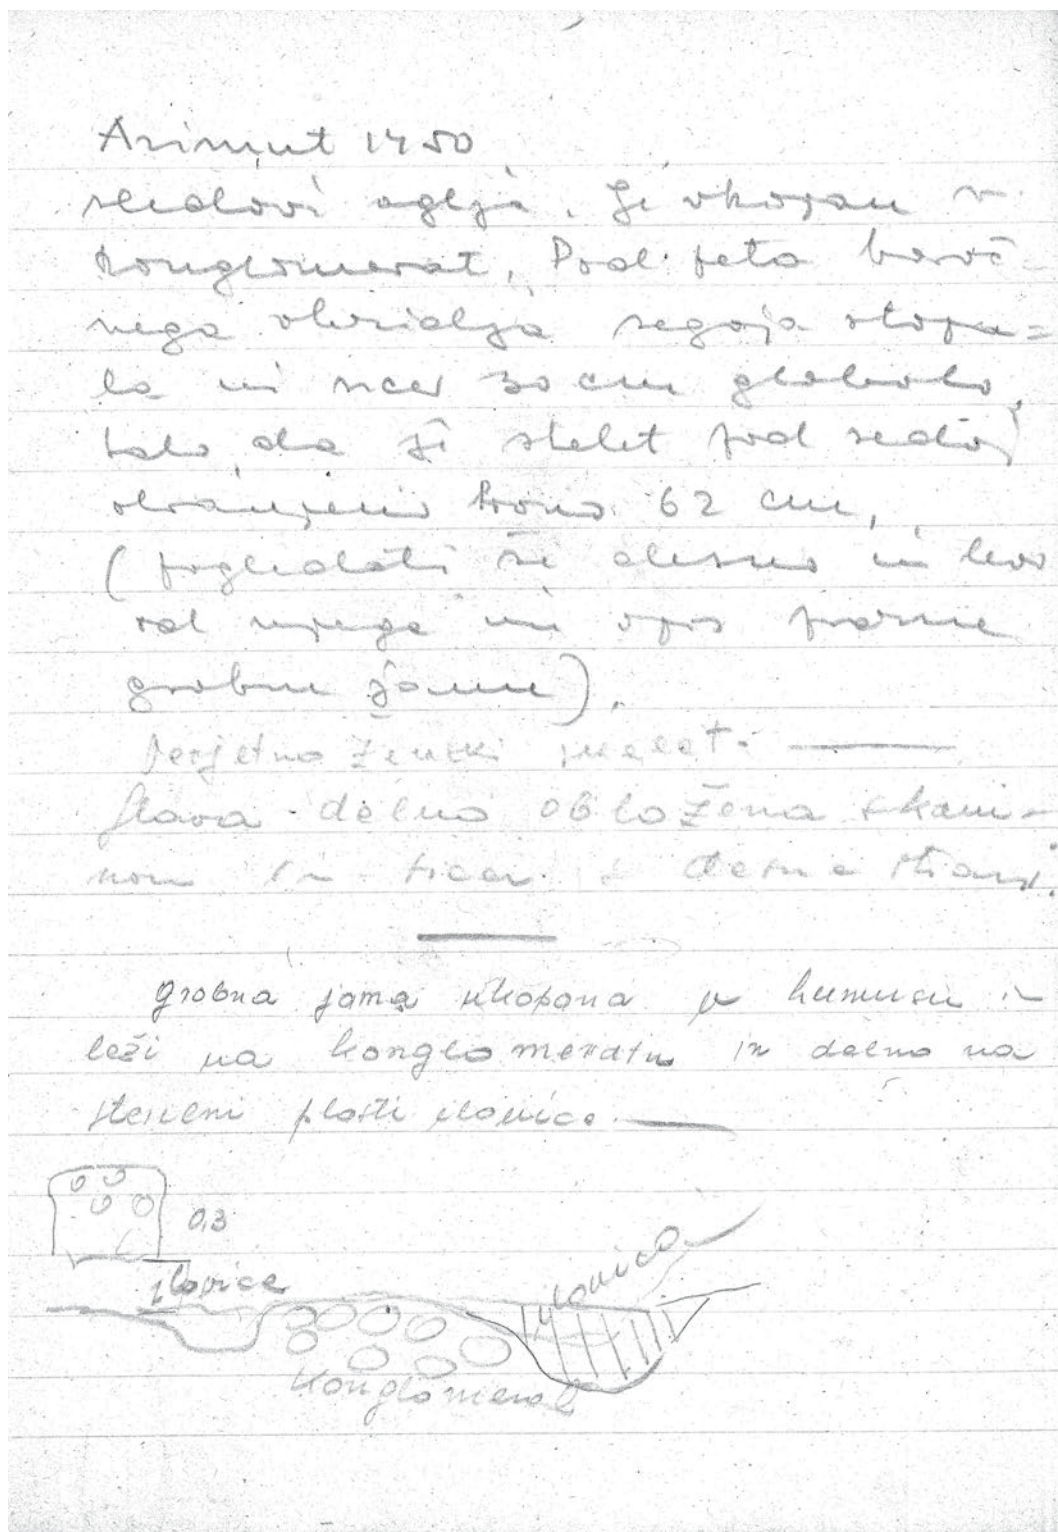 Azimut 1450
sledovi oglja. Je vkopan v
konglomerat. Pod peto baroč-
nega obzidja segajo stopa=
la in sicer 30 cm globoko,
tako, da je skelet pod sedaj
ohranjeno krono 62 cm.
(pogledati še desno in levo
od njega in opis prazne
grobne jame).
Verjetno ženski skelet. —
Glava delno obložena s kami-
nom in sicer z desne strani.
grobna jama vkopana v humusu in
leži na konglomeratu in delno na
steseni plasti ilovice. —
0,3
ilovica
ilovica
Konglomerat